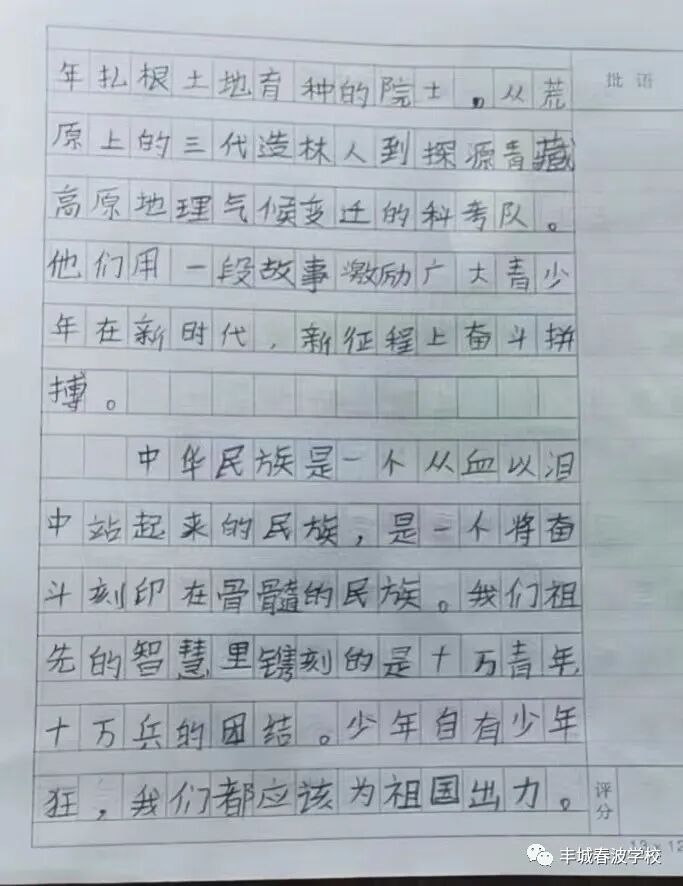 年扎根土地育种的院士。从荒
批语
原上的三代造林人到探源青藏
高原地理气候变迁的科考队。
他们用一段故事激励广大青少
年在新时代，新征程上奋斗拼
搏。
中华民族是一个从血以泪
中站起来的民族，是一个将奋
斗刻印在骨髓的民族。我们祖
先的智慧里镌刻的是十万青年
十万兵的团结。少年自有少年
狂，我们都应该为祖国出力。
评分
丰城春波学校